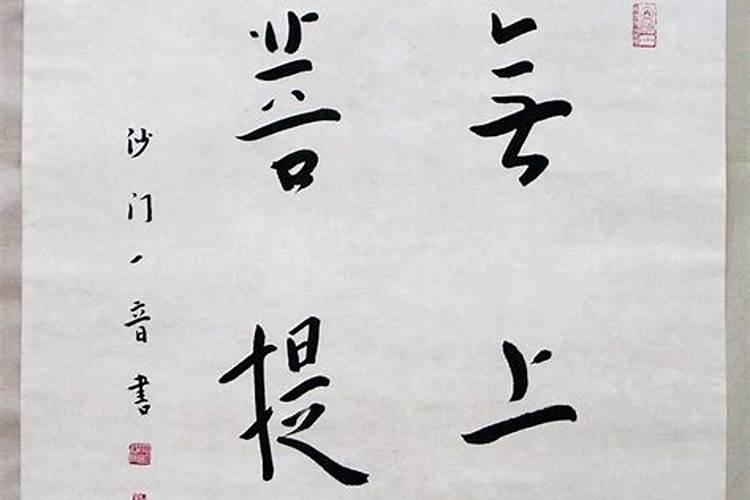 無上
菩提
沙门一音書